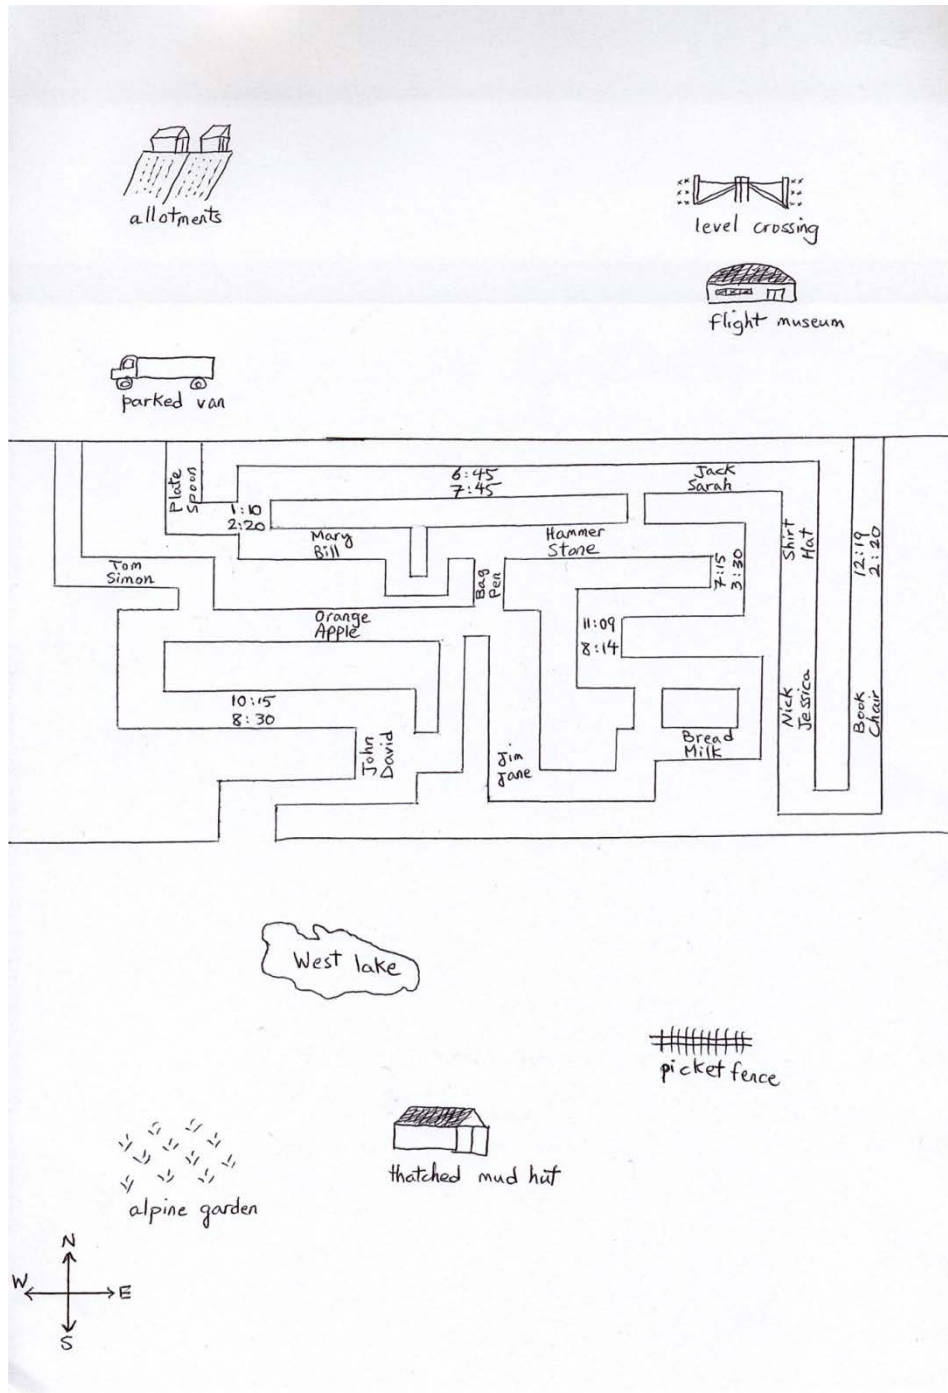 allotments
level crossing
flight museum
parked van
Plate
Spoon
6:45
7:45
Jack
Sarah
1:10
2:20
Mary
Bill
Hammer
Stone
Shirt
Hat
12:19
2:20
7:15
3:30
Tom
Simon
Bag
Pen
Orange
Apple
11:09
8:14
10:15
8:30
Nick
Jessica
Book
Chair
John
David
Jim
Jane
Bread
Milk
West lake
picket fence
thatched mud hut
alpine garden
N
W
E
S